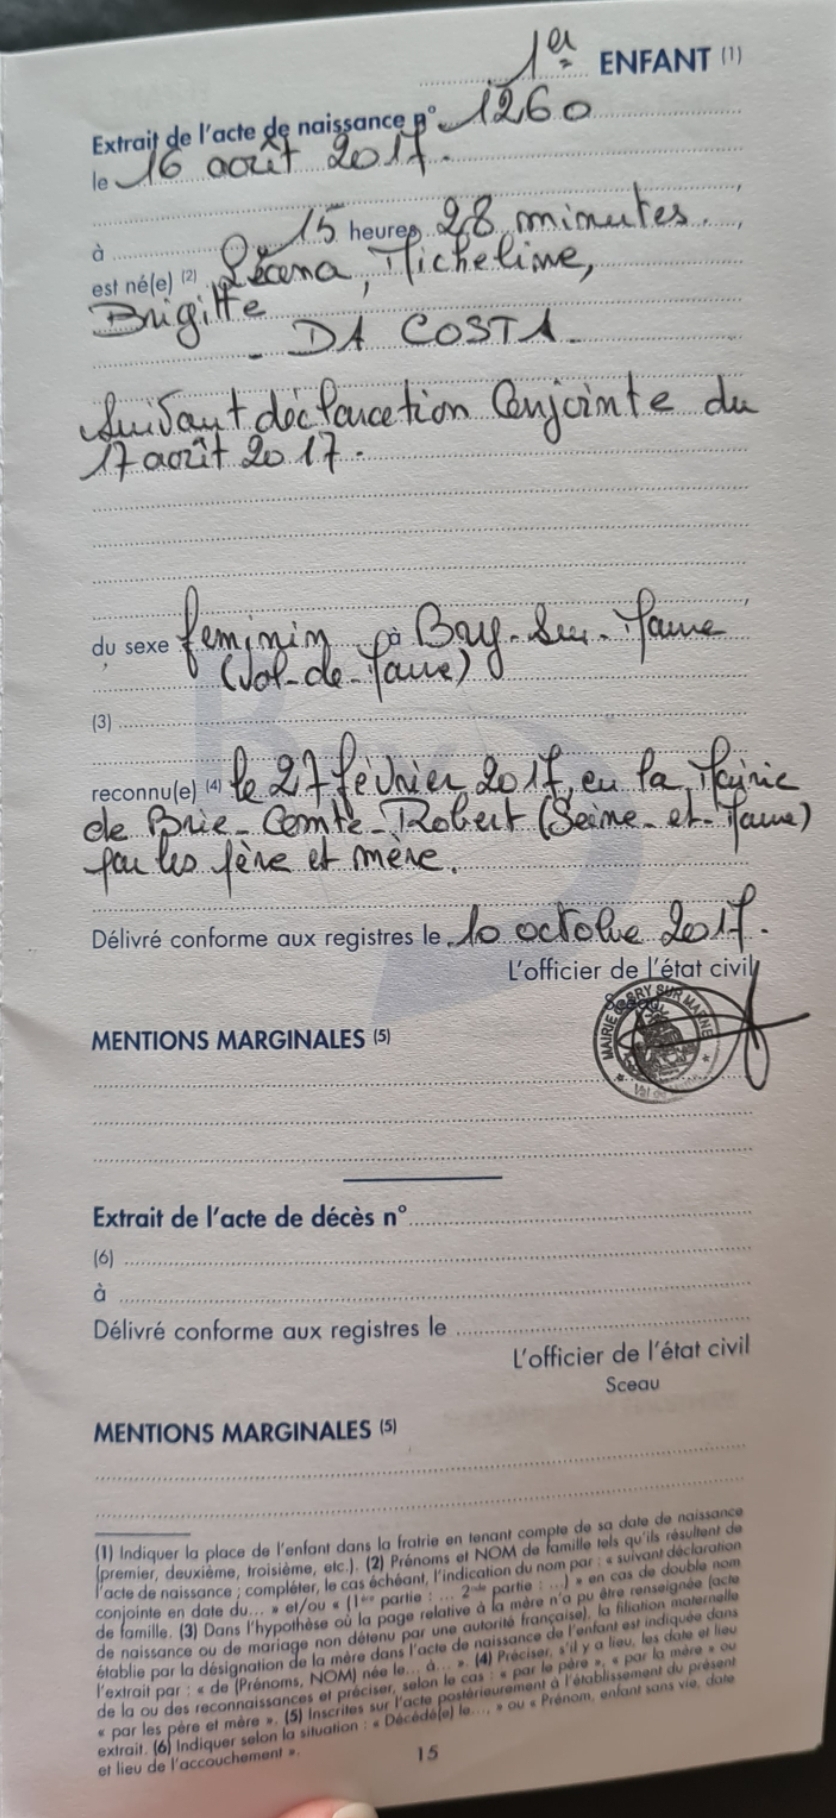 1er ENFANT (1)
Extrait de l'acte de naissance n° 1260
le 16 août 2017.
à 15 heures 28 minutes.,
est né(e) (2) Léana, Micheline,
Brigitte
- DA COSTA -
Suivant déclaration Conjointe du
17 août 2017.
du sexe feminin à Bry-Sur-Marne
(Val-de-Marne)
(3)
reconnu(e) (4) le 27 février 2017, en la Mairie
de Brie-Comte-Robert (Seine-et-Marne)
par les père et mère.
Délivré conforme aux registres le 10 octobre 2017.
L'officier de l'état civil
Sceau
MAIRIE DE BRY SUR MARNE
Val de
MENTIONS MARGINALES (5)
Extrait de l'acte de décès n°
(6)
à
Délivré conforme aux registres le
L'officier de l'état civil
Sceau
MENTIONS MARGINALES (5)
(1) Indiquer la place de l'enfant dans la fratrie en tenant compte de sa date de naissance
(premier, deuxième, troisième, etc.). (2) Prénoms et NOM de famille tels qu'ils résultent de
l'acte de naissance ; compléter, le cas échéant, l'indication du nom par : « suivant déclaration
conjointe en date du... » et/ou « (1ère partie : ... 2nde partie : ...) » en cas de double nom
de famille. (3) Dans l'hypothèse où la page relative à la mère n'a pu être renseignée (acte
de naissance ou de mariage non détenu par une autorité française), la filiation maternelle
établie par la désignation de la mère dans l'acte de naissance de l'enfant est indiquée dans
l'extrait par : « de (Prénoms, NOM) née le... à... ». (4) Préciser, s'il y a lieu, les date et lieu
de la ou des reconnaissances et préciser, selon le cas : « par le père », « par la mère » ou
« par les père et mère ». (5) Inscrites sur l'acte postérieurement à l'établissement du présent
extrait. (6) Indiquer selon la situation : « Décédé(e) le..., » ou « Prénom, enfant sans vie, date
et lieu de l'accouchement ».
15